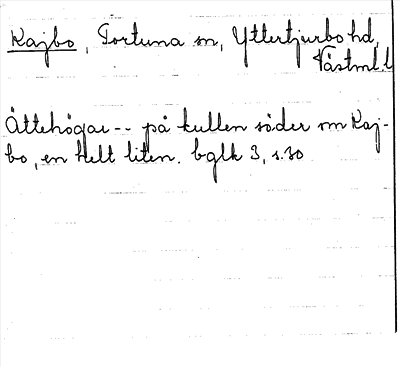 Kajbo, Tortuna sn, Yttertjurbo hd,
Västml. l
Ättehögar -- på kullen söder om Kaj-
bo, en helt liten. bglk 3, s. 30